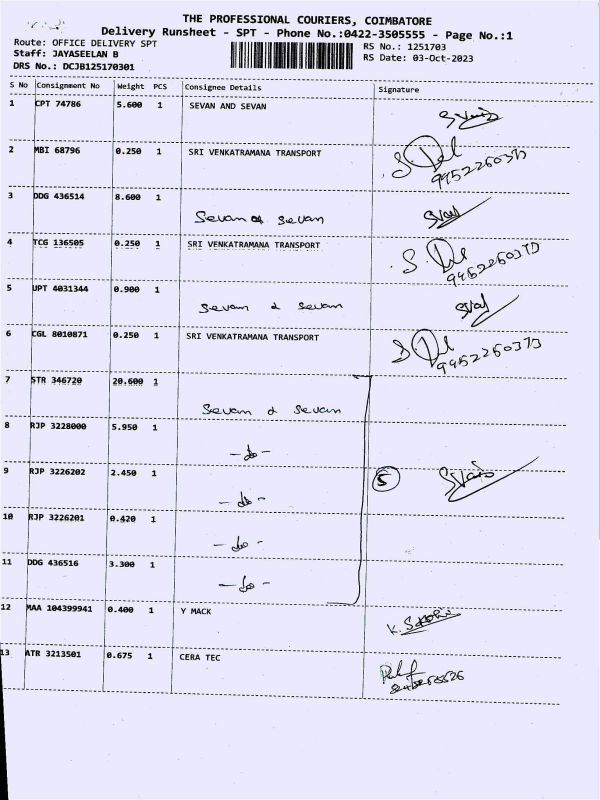 THE PROFESSIONAL COURIERS, COIMBATORE
Delivery Runsheet - SPT - Phone No.:0422-3505555 - Page No.:1
Route: OFFICE DELIVERY SPT
RS No.: 1251703
Staff: JAYASEELAN B
RS Date: 03-Oct-2023
DRS No.: DCJB125170301
S No Consignment No Weight PCS Consignee Details Signature
1 CPT 74786 5.600 1 SEVAN AND SEVAN
2 MBI 68796 0.250 1 SRI VENKATRAMANA TRANSPORT
9952260373
3 DDG 436514 8.600 1
Sevan & Sevan
4 TCG 136505 0.250 1 SRI VENKATRAMANA TRANSPORT
9952260373
5 UPT 4031344 0.900 1
Sevan & Sevan
6 CGL 8010871 0.250 1 SRI VENKATRAMANA TRANSPORT
9952260373
7 STR 346720 20.600 1
Sevan & Sevan
8 RJP 3228000 5.950 1
-do-
9 RJP 3226202 2.450 1
5
-do-
10 RJP 3226201 0.420 1
-do-
11 DDG 436516 3.300 1
-do-
12 MAA 104399941 0.400 1 Y MACK
13 ATR 3213501 0.675 1 CERA TEC